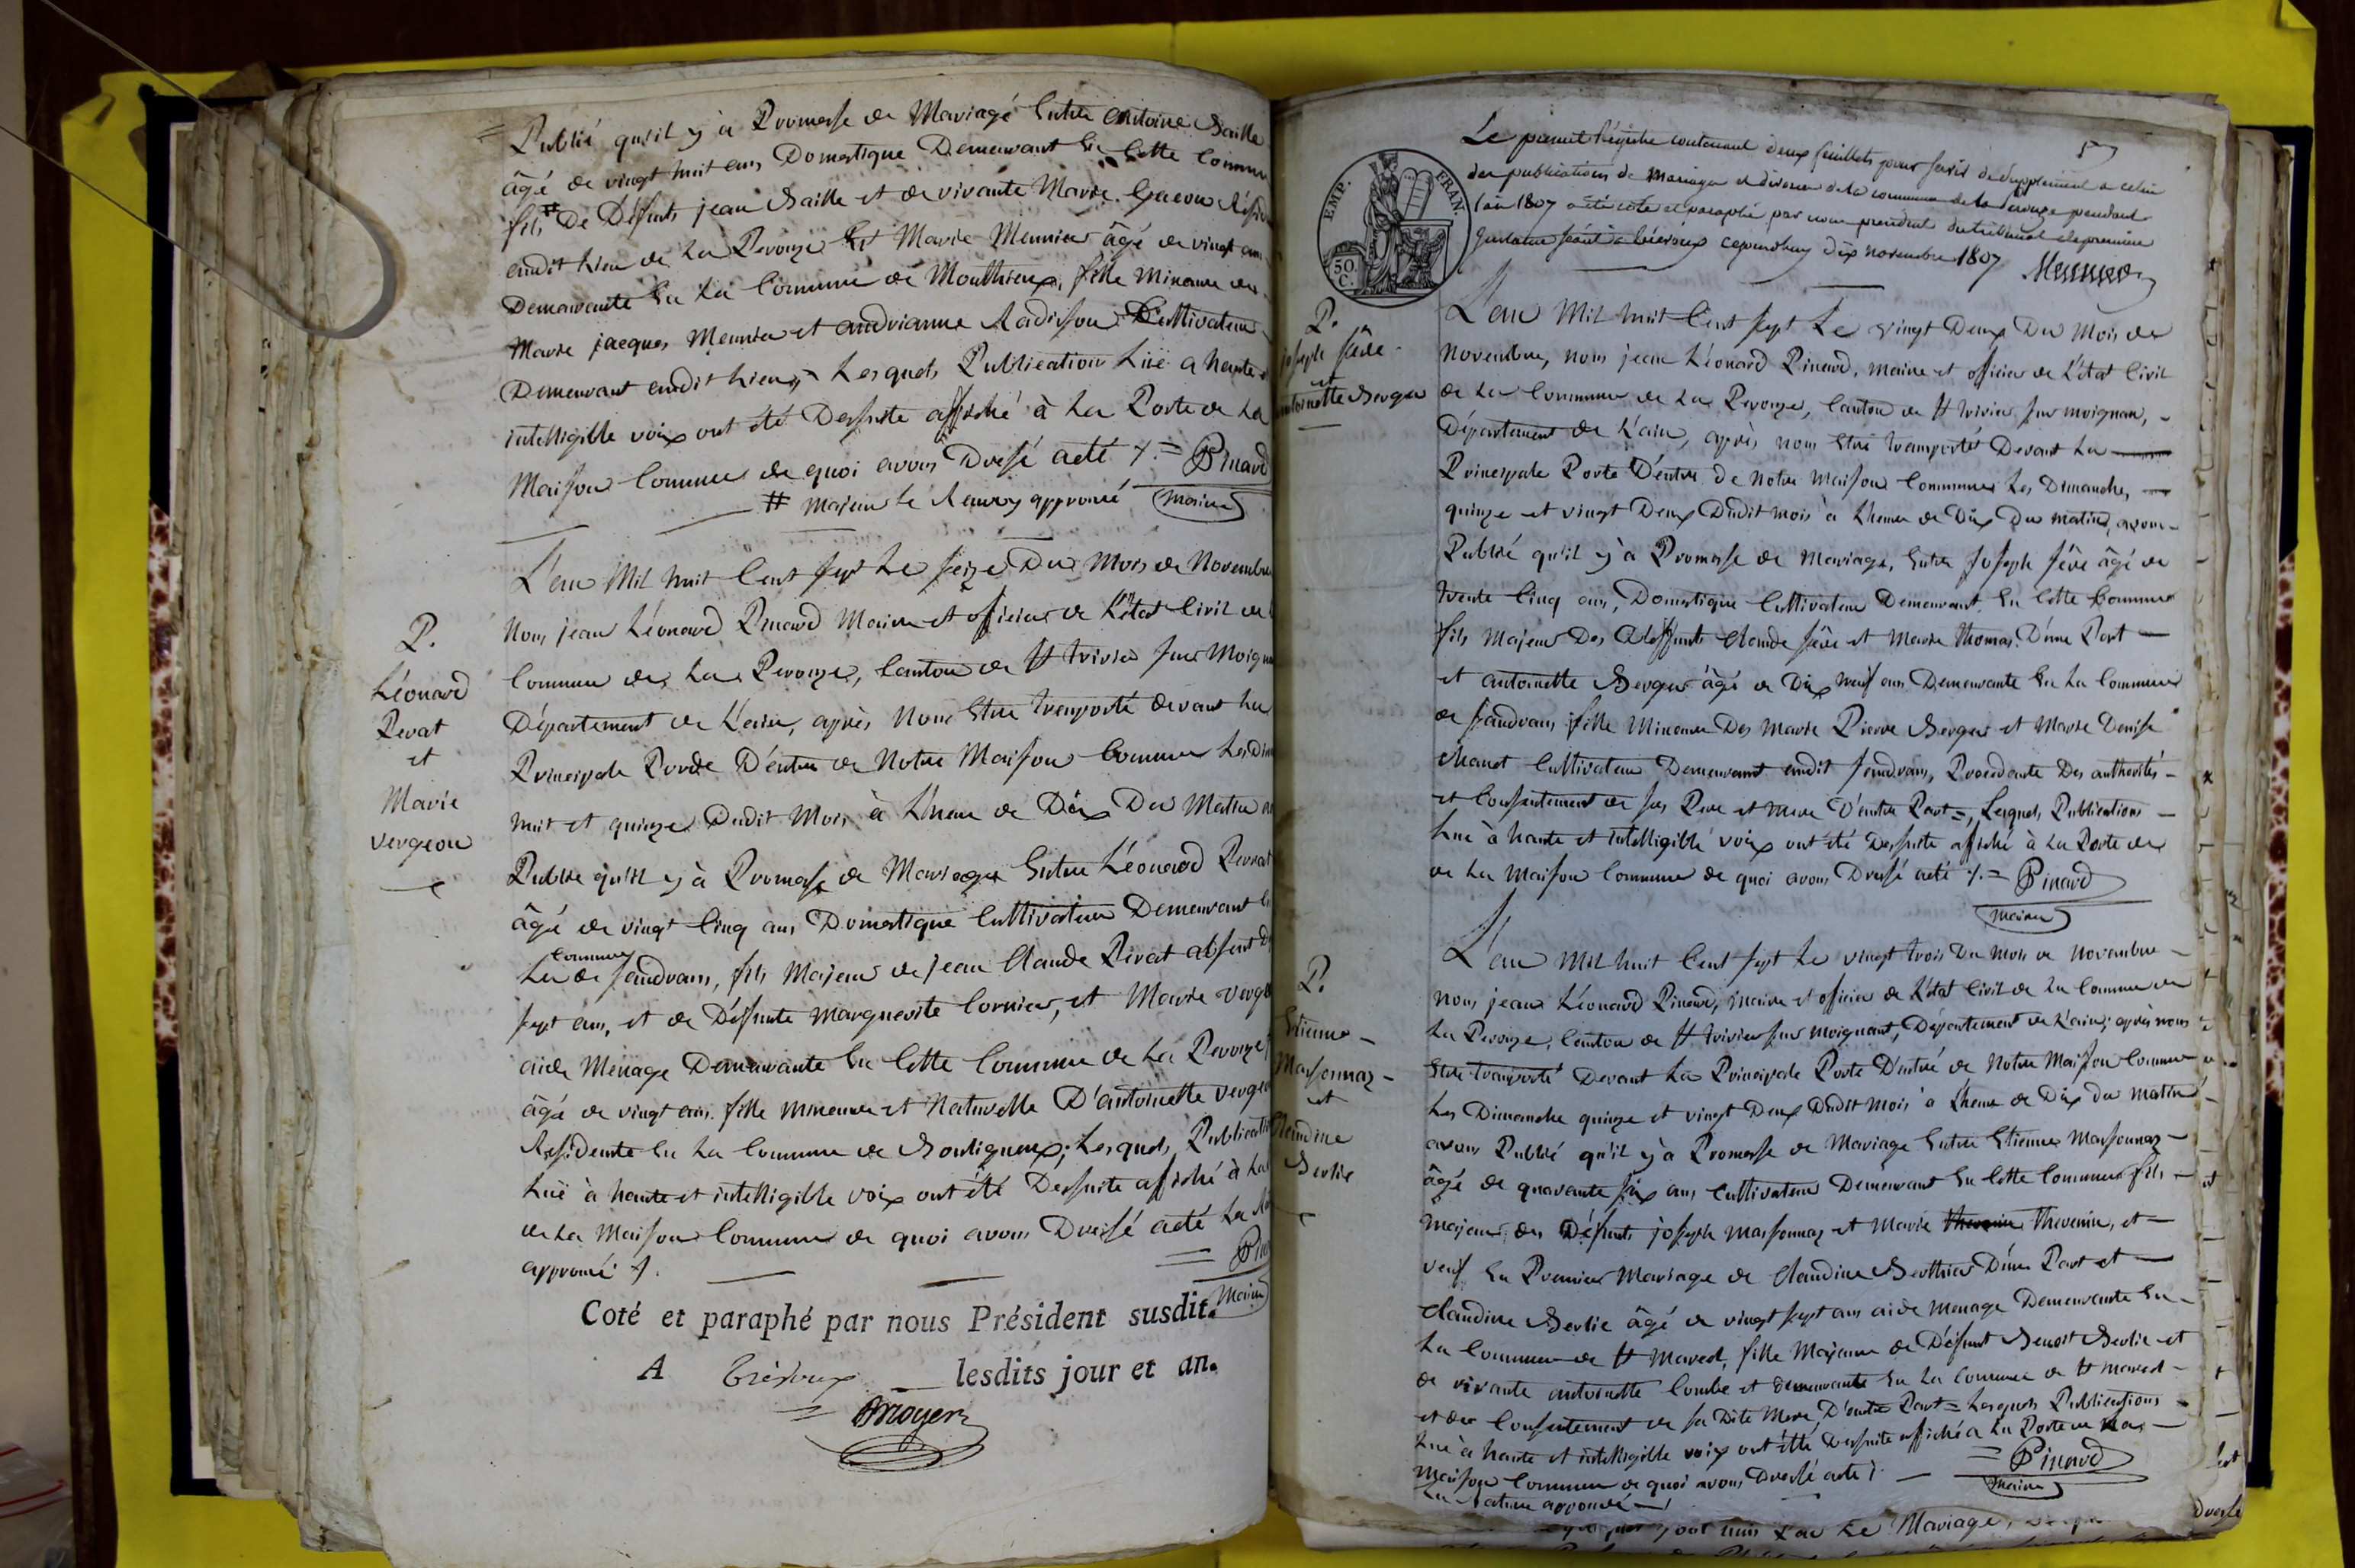 Publié qu'il y à Promesse de Mariagé Entre Antoine Baille
âgé de vingt huit ans Domestique Demeurant En Cette Commu
fils # De Défunts jean Baille et de vivante Marie
audit Lieu de La Peyouze Et Marie Meunier âgé de vingt ans
Demeurante En La Commune de Monthieux, fille Mineure de
Marie jacques Meunier et andrianne Radisson Cultivateur
Demeurant audit Lieu, Lesquels Publication Lüe a haute
intelligible voix ont été Dessuite affiché à La Porte de La
Maison Commune de quoi avons Dressé acté ⁒ = Pinard
# majeur Le Renvoy approuvé maire
L'an Mil huit Cent sept Le seize Du Mois de Novembre
P.
Léonard
Perat
et
Marie
vergeon
Nous jean Léonard Pinard Maire et officier de L'état Civil de
Commune de La Peyouze, Canton de St trivier sur Moign
Département de L'ain, après Nous Etre transporté devant La
Principale Porte D'entré de Notre Maison Commune Les Dim
huit et quinze Dudit Mois à L'heure de Dix Du Matin
Publié qu'il y à Promesse de Mariage Entre Léonard Perrat
âgé de vingt Cinq ans Domestique Cultivateur Demeurant
La commune de Sandrans, fils Majeur de jean Claude Perat absent
sept ans, et de Défunte Marguerite Cornier, et Marie verge
aide Ménage Demeurante En Cette Commune de La Peyouze
âgé de vingt ans fille mineure et Naturelle D'antoinette verge
Résidente En La Commune de Bouligneux; Lesquels Publicatio
Lüe à haute et intelligible voix ont été Dessuite affiché à La
de La Maison Commune de quoi avons Dressé acté La
approuvé ⁒ = Pin
Maire
Coté et paraphé par nous Président susdit.
A Trévoux lesdits jour et an.
Moyer
Le present Régistre contenant deux feuillets pour servir de supplement a celui
des publications de mariages et divorces de la commune de La Peyrouze pendant
l'an 1807 a été coté et paraphé par nous president du tribunal de premiere
instance séant à trévoux cejourdhuy dix novembre 1807
EMP. FRAN.
50.
C.
P.
joseph Sève
et
antoinette Berger
L'an Mil huit Cent sept Le vingt Deux Du Mois de
Novembre, nous jean Léonard Pinard, maire et officier de L'état Civil
de La Commune de La Peyouze, Canton de St trivier sur moignan,
Département de L'ain, après nous Etre transportés Devant La
Principale Porte D'entré de Notre maison Commune Les Dimanches,
quinze et vingt Deux Dudit mois à L'heure de Dix Du matin, avons
Publié qu'il y à Promesse de Mariage, Entre Joseph Sève âgé de
trente Cinq ans, Domestique Cultivateur Demeurant En Cette Commune
fils Majeur Des Deffunts Claude Sève et Marie thomas D'une Part
et antoinette Berger âgé de Dix neuf ans Demeurante En La Commune
de Sandrans fille Mineure Des Marie Pierre Berger et Marie Denise
Chanet Cultivateur Demeurant audit Sandrans, Procedente Des authorités
et Consentement de ses Pere et mere D'autre Part =, Lesquels Publications
Lue à haute et intelligible voix ont été Dessuite affiché à La Porte de
de La Maison Commune de quoi avons Dressé acté ⁒ = Pinard
maire
P.
Etienne
Massonnaz
et
Claudine
Berlie
L'an Mil huit Cent sept Le vingt trois Du Mois de Novembre
nous jean Léonard Pinard, maire et officier de L'état Civil de La Commune de
La Peyouze, Canton de St trivier sur moignant, Département de L'ain; après nous
Etre transporté Devant La Principale Porte D'entré de Notre Maison Commune
Les Dimanche quinze et vingt Deux Dudit Mois à L'heure de Dix du matin
avons Publié qu'il y à Promesse de Mariage Entre Etienne Massonnaz
âgé de quarante six ans Cultivateur Demeurant En Cette Commune fils
majeur des Défunts joseph massonnaz et Marie thevenin thevenin, et
veuf En Premier Mariage de Claudine Berthier D'une Part et
Claudine Berlie âgé de vingt sept ans aide menage Demeurante En
La Commune de St Marcel, fille Majeure de Défunt Benoit Berlie et
de vivante antoinette Combe et demeurante En La Commune de St marcel
et du Consentement de sa Dite Mere, D'autre Part = Lesquels Publications
Lue à haute et intelligible voix ont été Dessuite affiché à La Porte de La
Maison Commune de quoi avons Dressé acté ⁒ = Pinard
La Rature approuvé maire